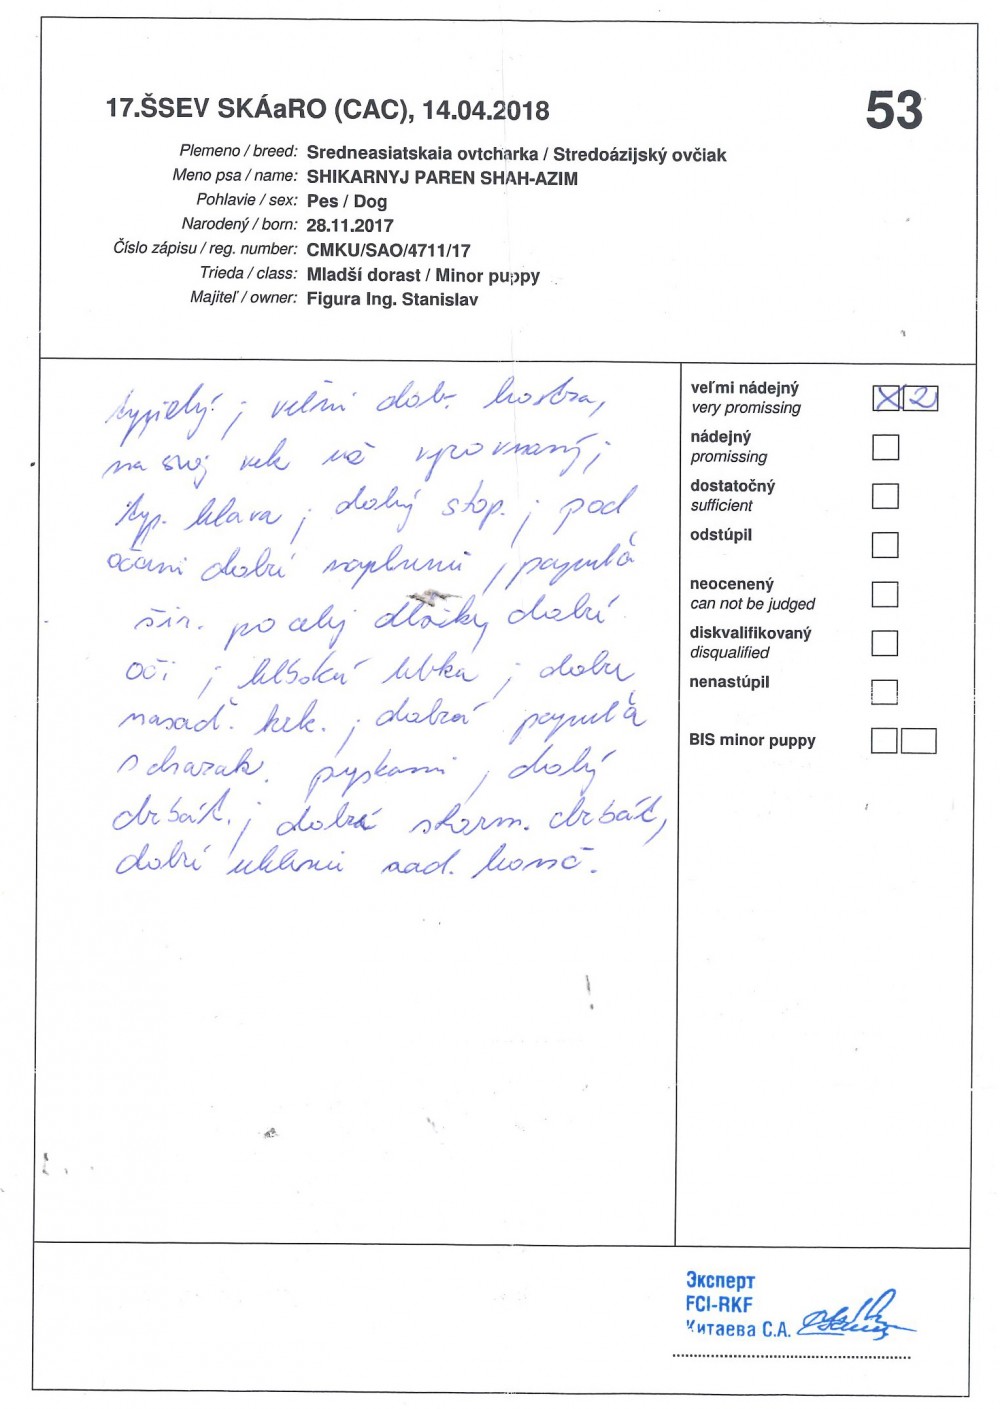 17.ŠSEV SKÁaRO (CAC), 14.04.2018
53
Plemeno / breed: Sredneasiatskaia ovtcharka / Stredoázijský ovčiak
Meno psa / name: SHIKARNYJ PAREN SHAH-AZIM
Pohlavie / sex: Pes / Dog
Narodený / born: 28.11.2017
Číslo zápisu / reg. number: CMKU/SAO/4711/17
Trieda / class: Mladší dorast / Minor puppy
Majiteľ / owner: Figura Ing. Stanislav
typický ; veľmi dob. kostra,
na svoj vek už vyrovnaný ;
typ. hlava ; dobrý stop. ; pod
očami dobré naplnení ; papuľa
šir. po celej dĺžky dobré
oči ; hlboká lebka ; dobre
nasad. krk. ; dobrá papuľa
s charak. pyskami ; dobrý
chrbát. ; dobrá chrbát,
dobré uhlenie zad. konč.
veľmi nádejný X 2
very promissing
nádejný
promissing
dostatočný
sufficient
odstúpil
neocenený
can not be judged
diskvalifikovaný
disqualified
nenastúpil
BIS minor puppy
Эксперт
FCI-RKF
Китаева С.А.